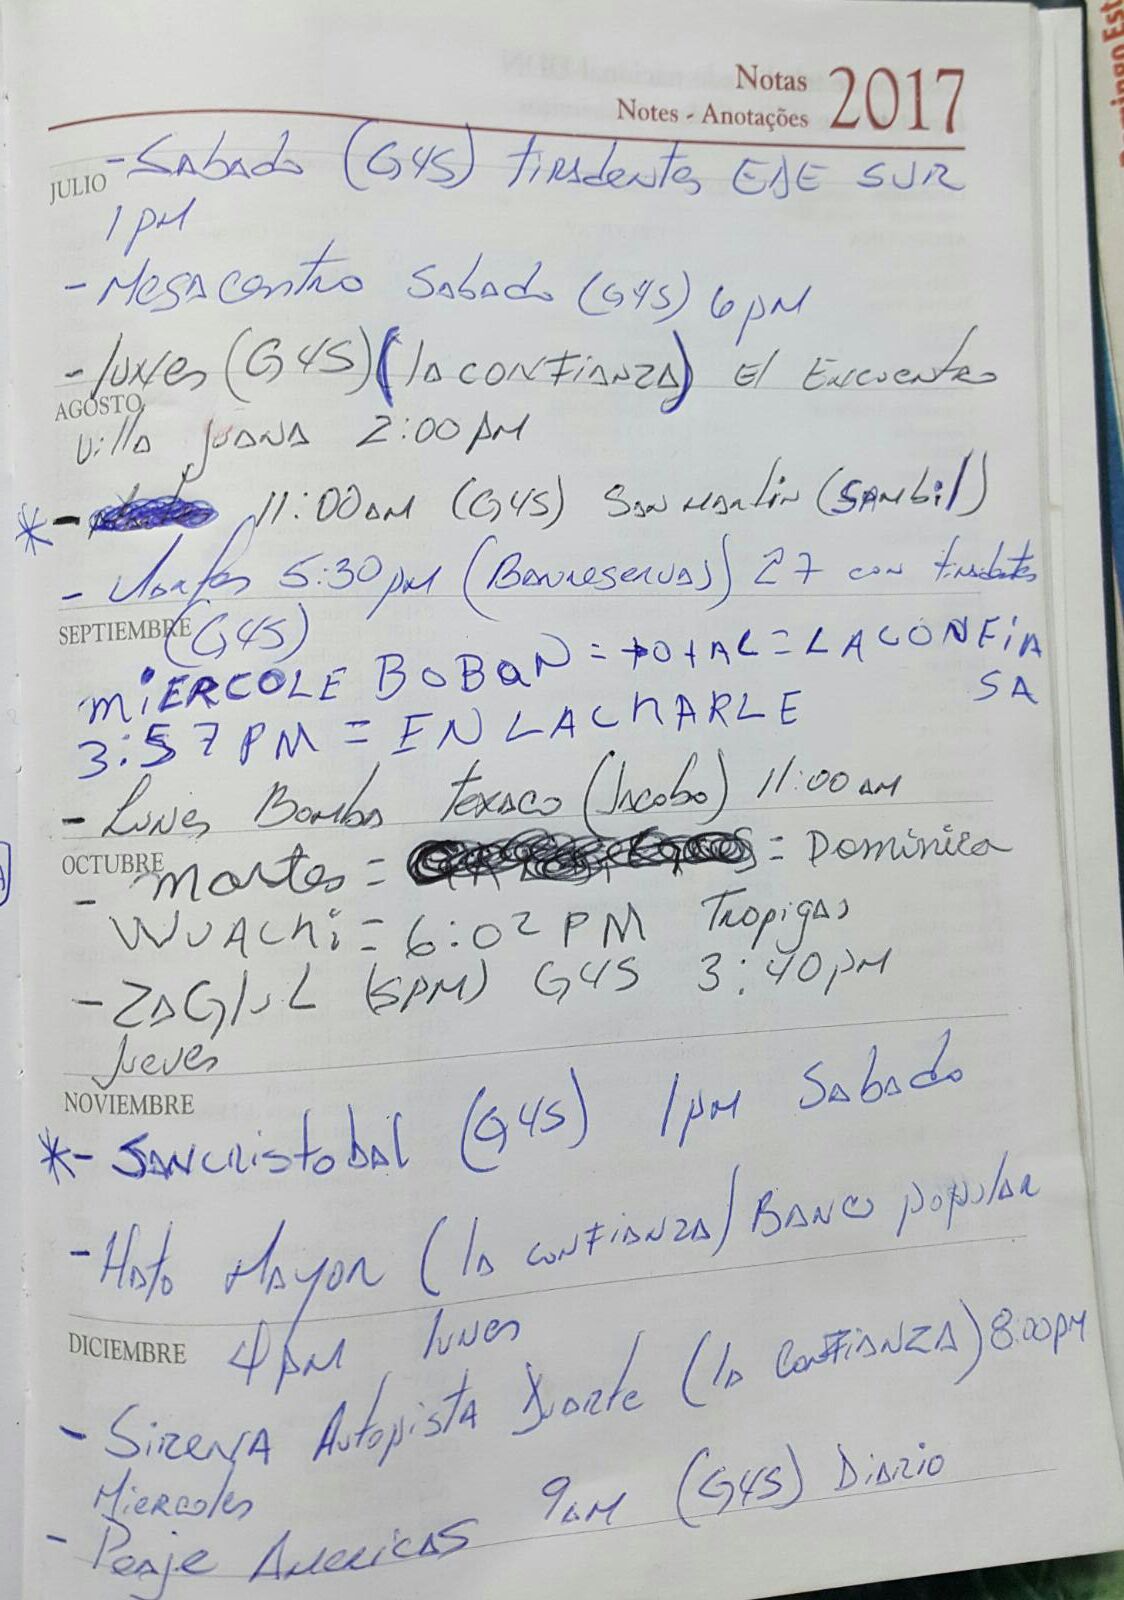 Notas 2017
Notes - Anotações
JULIO - Sabado (G4S) tiradentes EDE SUR
1 PM
- Megacentro Sabado (G4S) 6 pM
- lunes (G4S) (la CONFIANZA) El Encuentro
AGOSTO
Villa juana 2:00 PM
* - 11:00 AM (G4S) San Martin (SAMbil)
- Martes 5:30 pm (Banreservas) 27 con tiradentes
SEPTIEMBRE (G4S)
MiERCOLE BOBaN = totAL = LACONFiA
SA
3:57 PM = EN LACHARLE
- Lunes Bomba Texaco (Jacobo) 11:00 AM
OCTUBRE
- martes = = Dominica
WUAChi = 6:02 PM Tropigas
- ZAGlUL (5PM) G4S 3:40 pM
Jueves
NOVIEMBRE
* - SANCRistobal (G4S) 1 pM Sabado
- Hato Mayor (la CONFIANZA / BANCO popular
DICIEMBRE 4 pM lunes
- SiRENA Autopista Duarte (la CONFIANZA) 8:00 pM
Miercoles
- Peaje AMERICAS 9 AM (G4S) DiARIO